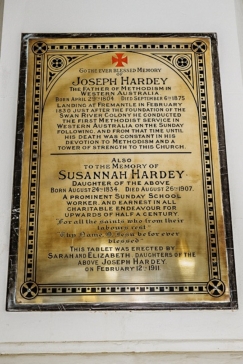 To the ever blessed Memory
of
Joseph Hardey
The Father of Methodism in
Western Australia
Born April 29th 1804. Died September 6th 1875.
Landing at Fremantle in February
1830 just after the foundation of the
Swan River Colony he conducted
the first Methodist service in
Western Australia on the Sunday
following, and from that time until
his death was constant in his
devotion to Methodism and a
tower of strength to this Church.
Also
to the Memory of
Susannah Hardey
Daughter of the above
Born August 24th 1834. Died August 26th 1907.
A prominent Sunday School
worker, and earnest in all
charitable endeavour for
upwards of half a century
"For all the saints who from their
labours rest"
"Thy Name O Jesu be for ever
blessed"
This tablet was erected by
Sarah and Elizabeth, daughters of the
above Joseph Hardey,
on February 12th 1911